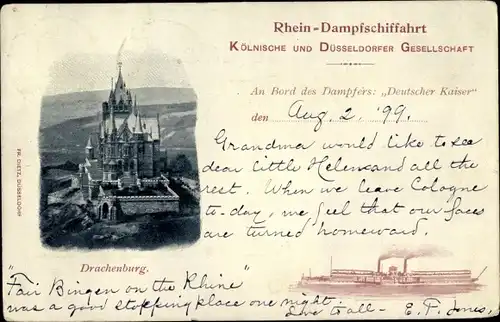 Rhein-Dampfschiffahrt
KÖLNISCHE UND DÜSSELDORFER GESELLSCHAFT
An Bord des Dampfers: „Deutscher Kaiser“
den Aug. 2, '99.
Grandma would like to see
dear little Helen and all the
rest. When we leave Cologne
to-day, we feel that our faces
are turned homeward.
FR. DIETZ, DÜSSELDORF
Drachenburg.
"Fair Bingen on the Rhine"
was a good stopping place one night.
Love to all – E. F. Jones,